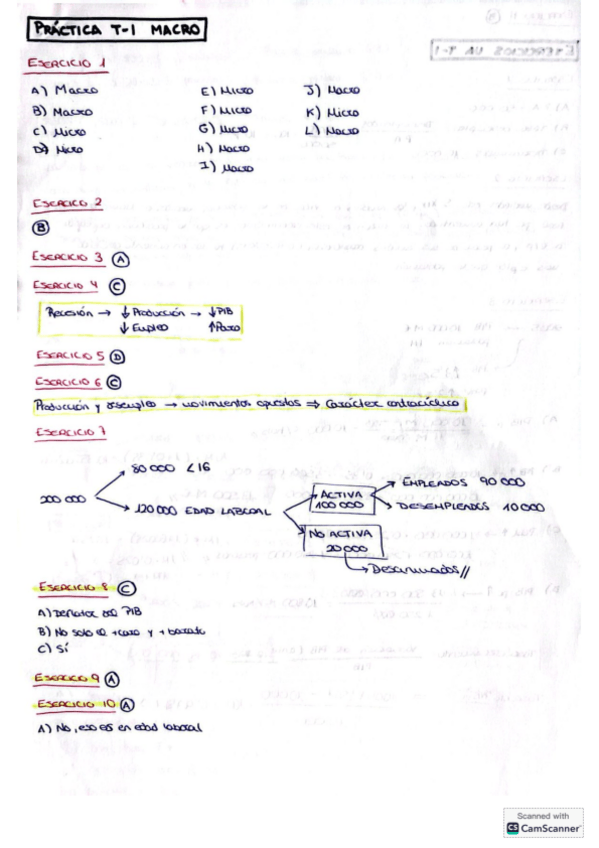 PRÁCTICA T-1 MACRO
EJERCICIO 1
A) Macro
B) Macro
C) Micro
D) Micro
E) Micro
F) Micro
G) Micro
H) Macro
I) Macro
J) Macro
K) Micro
L) Macro
EJERCICIO 2
B
EJERCICIO 3 A
EJERCICIO 4 C
Recesión → ↓ Producción → ↓ PIB
↓ Empleo ↑ Paro
EJERCICIO 5 D
EJERCICIO 6 C
Producción y desempleo → movimientos opuestos ⇒ Carácter contracíclico
EJERCICIO 7
200 000
80 000 < 16
120 000 EDAD LABORAL
ACTIVA
100 000
EMPLEADOS 90 000
DESEMPLEADOS 10 000
NO ACTIVA
20 000
Desanimados //
EJERCICIO 8 C
A) Deflactor del PIB
B) No solo el + caro y + barato
C) Sí
EJERCICIO 9 A
EJERCICIO 10 A
A) No, eso es en edad laboral
Scanned with
CS CamScanner